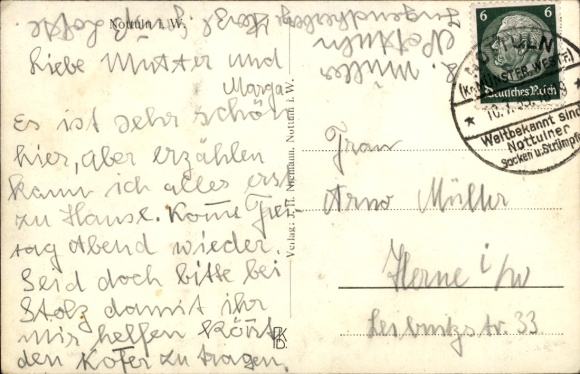 Nottuln i. W.
Liebe Mutter und
Marga
Es ist sehr schön
hier, aber erzählen
kann ich alles erst
zu Hause. Komme Frei-
tag Abend wieder.
Seid doch bitte bei
Stolz damit ihr
mir helfen könnt
den Koffer zu tragen.
Müller
Nottuln
Jugendherberge
Verlag: J. H. Niemann, Nottuln i. W.
6 6
Deutsches Reich
NOTTULN
(Kr. MÜNSTER, WESTF.)
Weltbekannt sind
Nottulner
Socken u. Strümpfe
Frau
Arno Müller
Herne i/W
Leibnitzstr. 33